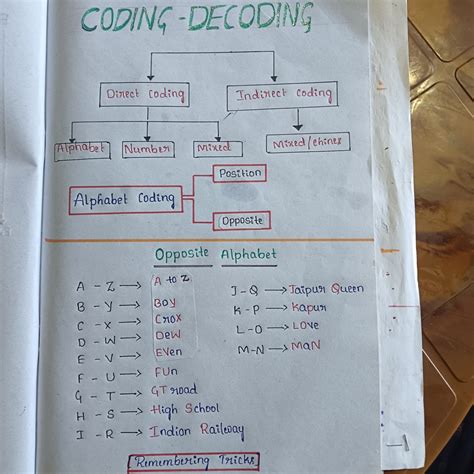 CODING-DECODING
Direct Coding
Indirect Coding
Alphabet
Number
Mixed
Mixed/Chines
Alphabet Coding
Position
Opposite
Opposite Alphabet
A - Z → A to Z
B - Y → Boy
C - X → Crox
D - W → Dew
E - V → EVen
F - U → FUn
G - T → GT road
H - S → High School
I - R → Indian Railway
J - Q → Jaipur Queen
K - P → Kapur
L - O → LOve
M - N → MaN
Remembering Tricks